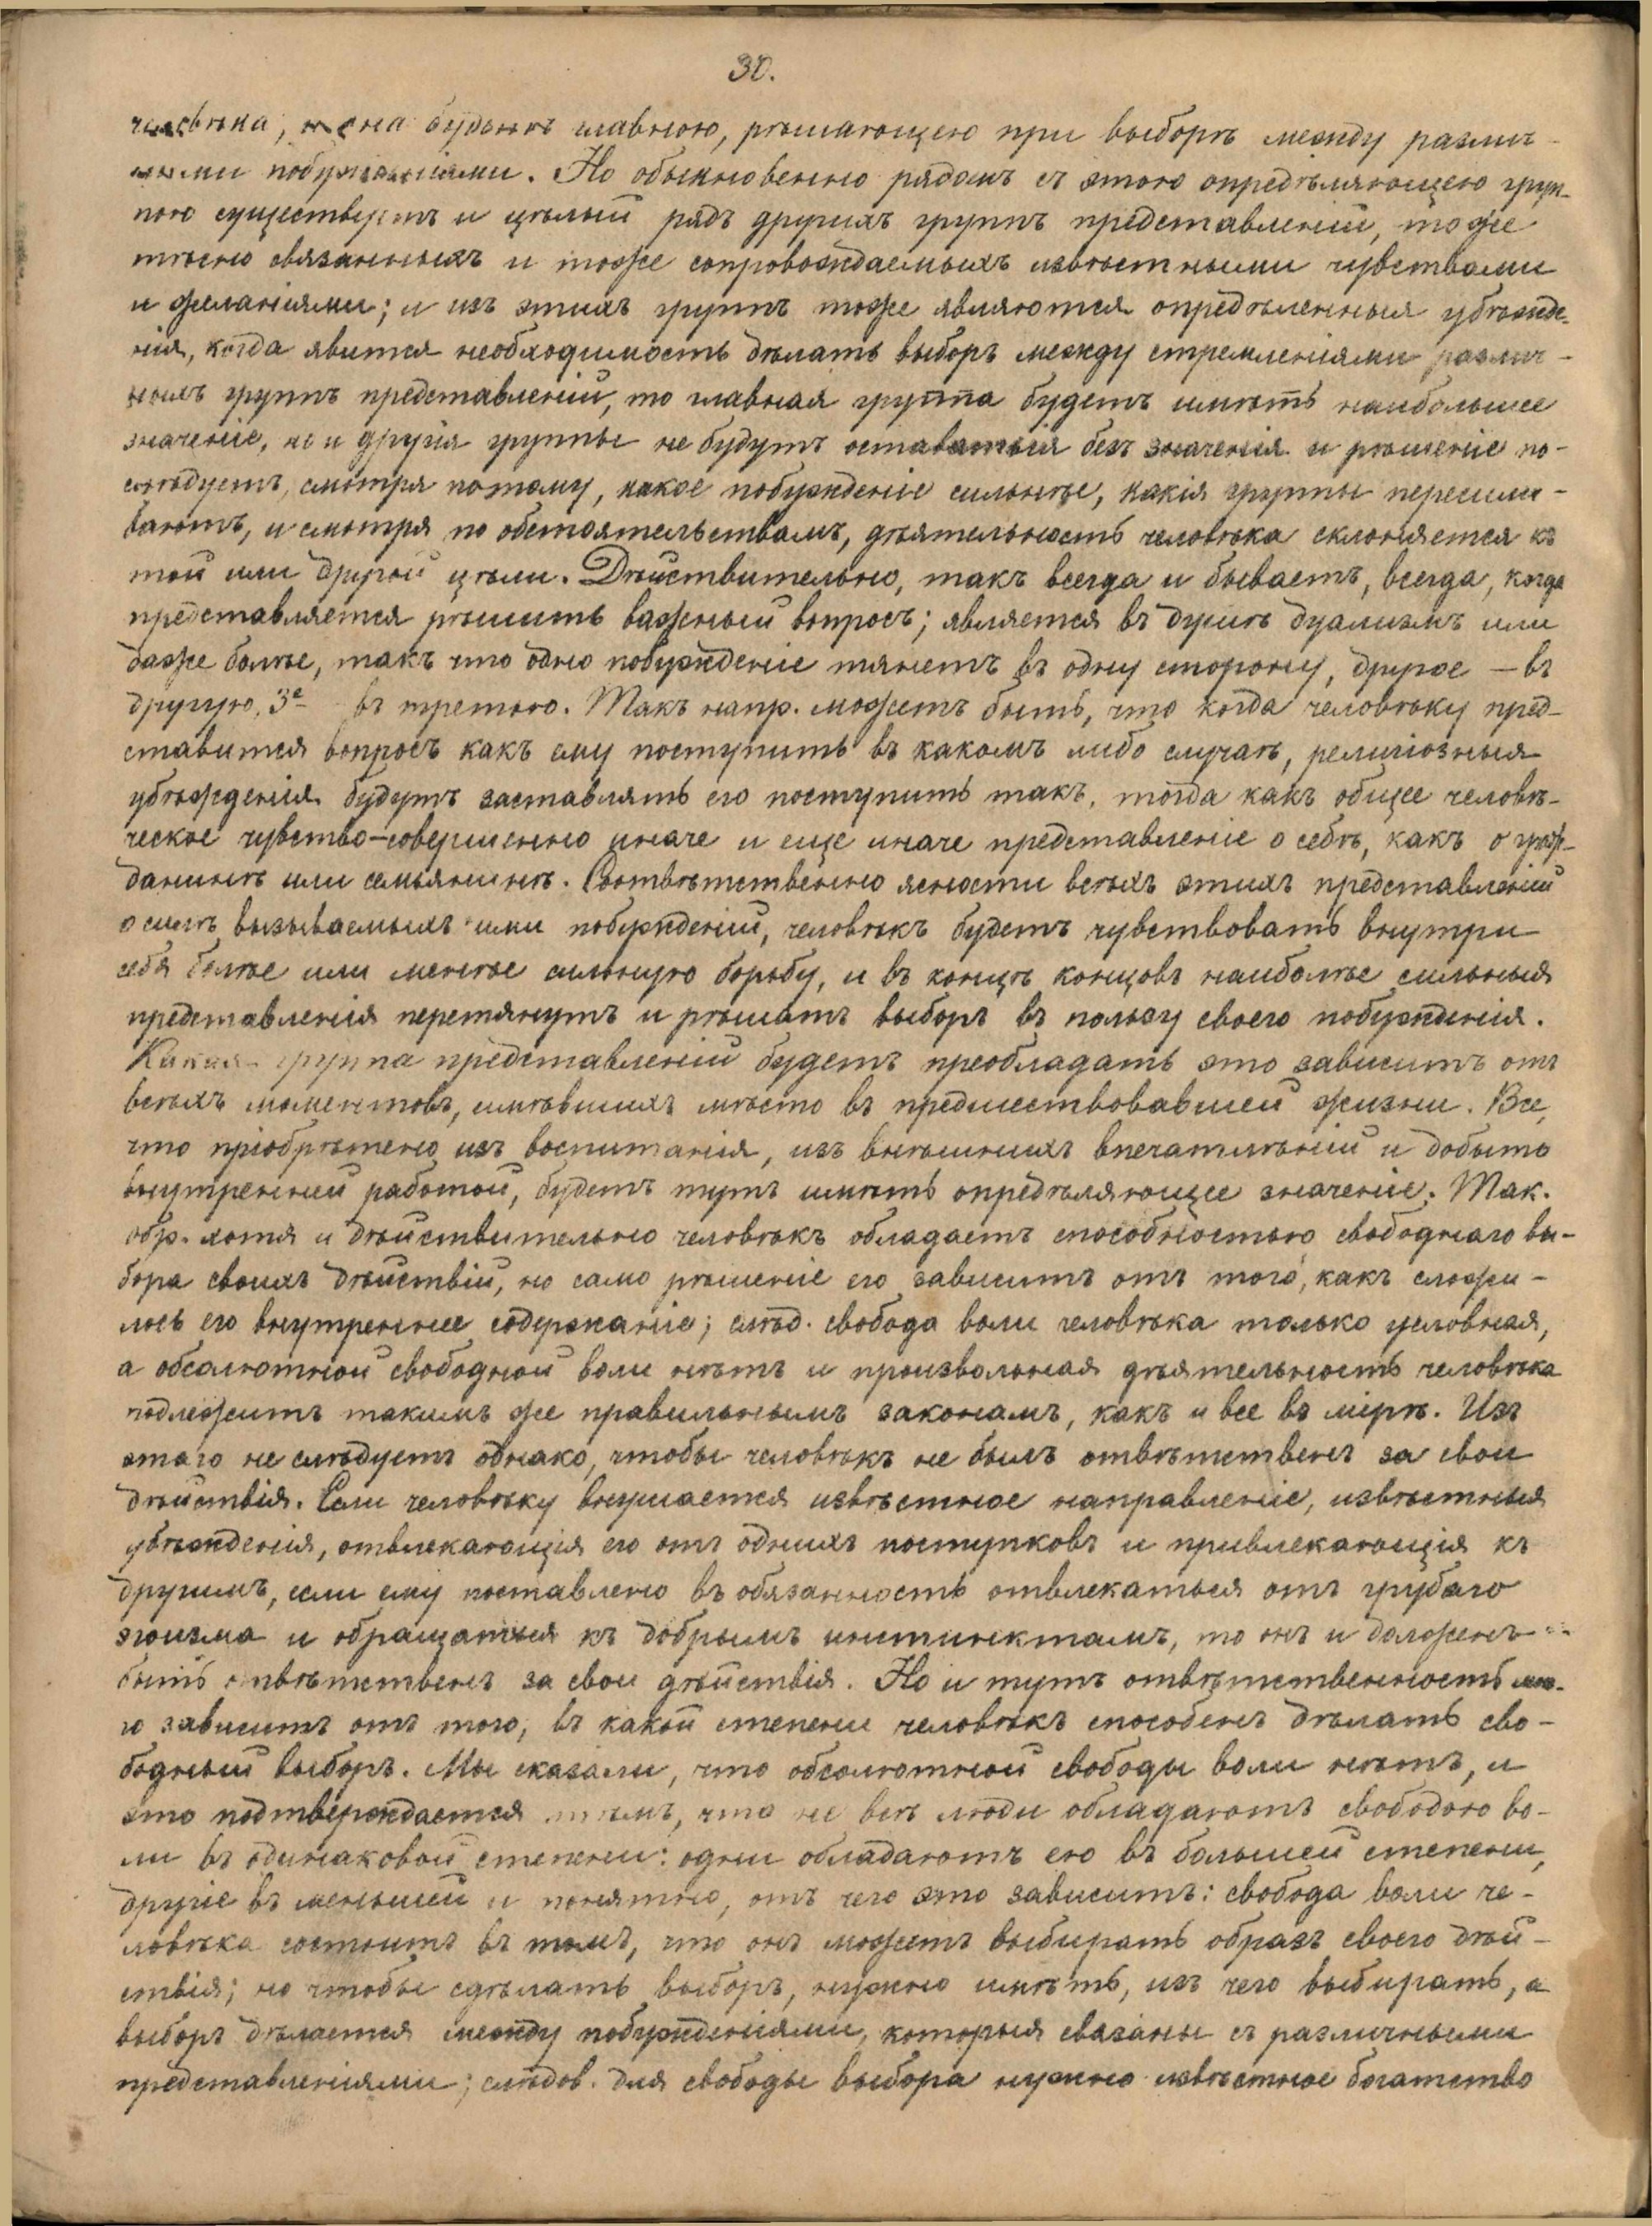 30.
человѣка, то она будетъ главною, рѣшающею при выборѣ между различ-
ными побужденіями. Но обыкновенно рядомъ съ этою опредѣляющею груп-
пою существуетъ и цѣлый рядъ другихъ группъ представленій, тоже
тѣсно связанныхъ и тоже сопровождаемыхъ извѣстными чувствами
и желаніями; и изъ этихъ группъ тоже являются опредѣленныя убѣжде-
нія, когда явится необходимость дѣлать выборъ между стремленіями различ-
ныхъ группъ представленій, то главная группа будетъ имѣть наибольшее
значеніе, но и другія группы не будутъ оставаться безъ значенія и рѣшеніе по-
слѣдуетъ, смотря потому, какое побужденіе сильнѣе, какія группы пересили-
ваютъ, и смотря по обстоятельствамъ, дѣятельность человѣка склоняется къ
той или другой цѣли. Дѣйствительно, такъ всегда и бываетъ, всегда, когда
представляется рѣшить важный вопросъ; является въ душѣ дуализмъ или
даже болѣе, такъ что одно побужденіе тянетъ въ одну сторону, другое — въ
другую, 3е - въ третью. Такъ напр. можетъ быть, что когда человѣку пред-
ставится вопросъ какъ ему поступить въ какомъ либо случаѣ, религіозныя
убѣжденія будутъ заставлять его поступить такъ, тогда какъ общее человѣ-
ческое чувство-совершенно иначе и еще иначе представленіе о себѣ, какъ о граж-
данинѣ или семьянинѣ. Соотвѣтственно ясности всѣхъ этихъ представленій
о силѣ вызываемыхъ ими побужденій, человѣкъ будетъ чувствовать внутри
себя болѣе или менѣе сильную борьбу, и въ концѣ концовъ наиболѣе сильныя
представленія перетянутъ и рѣшатъ выборъ въ пользу своего побужденія.
Какая группа представленій будетъ преобладать это зависитъ отъ
всѣхъ моментовъ, имѣвшихъ мѣсто въ предшествовавшей жизни. Все,
что пріобрѣтено изъ воспитанія, изъ внѣшнихъ впечатлѣній и добыто
внутренней работой, будетъ тутъ имѣть опредѣляющее значеніе. Так.
обр. хотя и дѣйствительно человѣкъ обладаетъ способностью свободнаго вы-
бора своихъ дѣйствій, но само рѣшеніе его зависитъ отъ того, какъ сложи-
лось его внутреннее содержаніе; слѣд. свобода воли человѣка только условная,
а обсолютной свободной воли нѣтъ и произвольная дѣятельность человѣка
подлежитъ такимъ же правильнымъ законамъ, какъ и все въ мірѣ. Изъ
этого не слѣдуетъ однако, чтобы человѣкъ не былъ отвѣтственъ за свои
дѣйствія. Если человѣку внушается извѣстное направленіе, извѣстныя
убѣжденія, отвлекающія его отъ однихъ поступковъ и привлекающія къ
другимъ, если ему поставлено въ обязанность отвлекаться отъ грубаго
эгоизма и обращаться къ добрымъ инстинктамъ, то онъ и долженъ
быть отвѣтственъ за свои дѣйствія. Но и тутъ отвѣтственность мно-
го зависитъ отъ того, въ какой степени человѣкъ способенъ дѣлать сво-
бодный выборъ. Мы сказали, что обсолютной свободы воли нѣтъ, и
это подтверждается тѣмъ, что не всѣ люди обладаютъ свободою во-
ли въ одинаковой степени: одни обладаютъ ею въ большей степени,
другіе въ меньшей и понятно, отъ чего это зависитъ: свобода воли че-
ловѣка состоитъ въ томъ, что онъ можетъ выбирать образъ своего дѣй-
ствія; но чтобы сдѣлать выборъ, нужно имѣть, изъ чего выбирать, а
выборъ дѣлается между побужденіями, которыя связаны съ различными
представленіями; слѣдов. для свободы выбора нужно извѣстное богатство